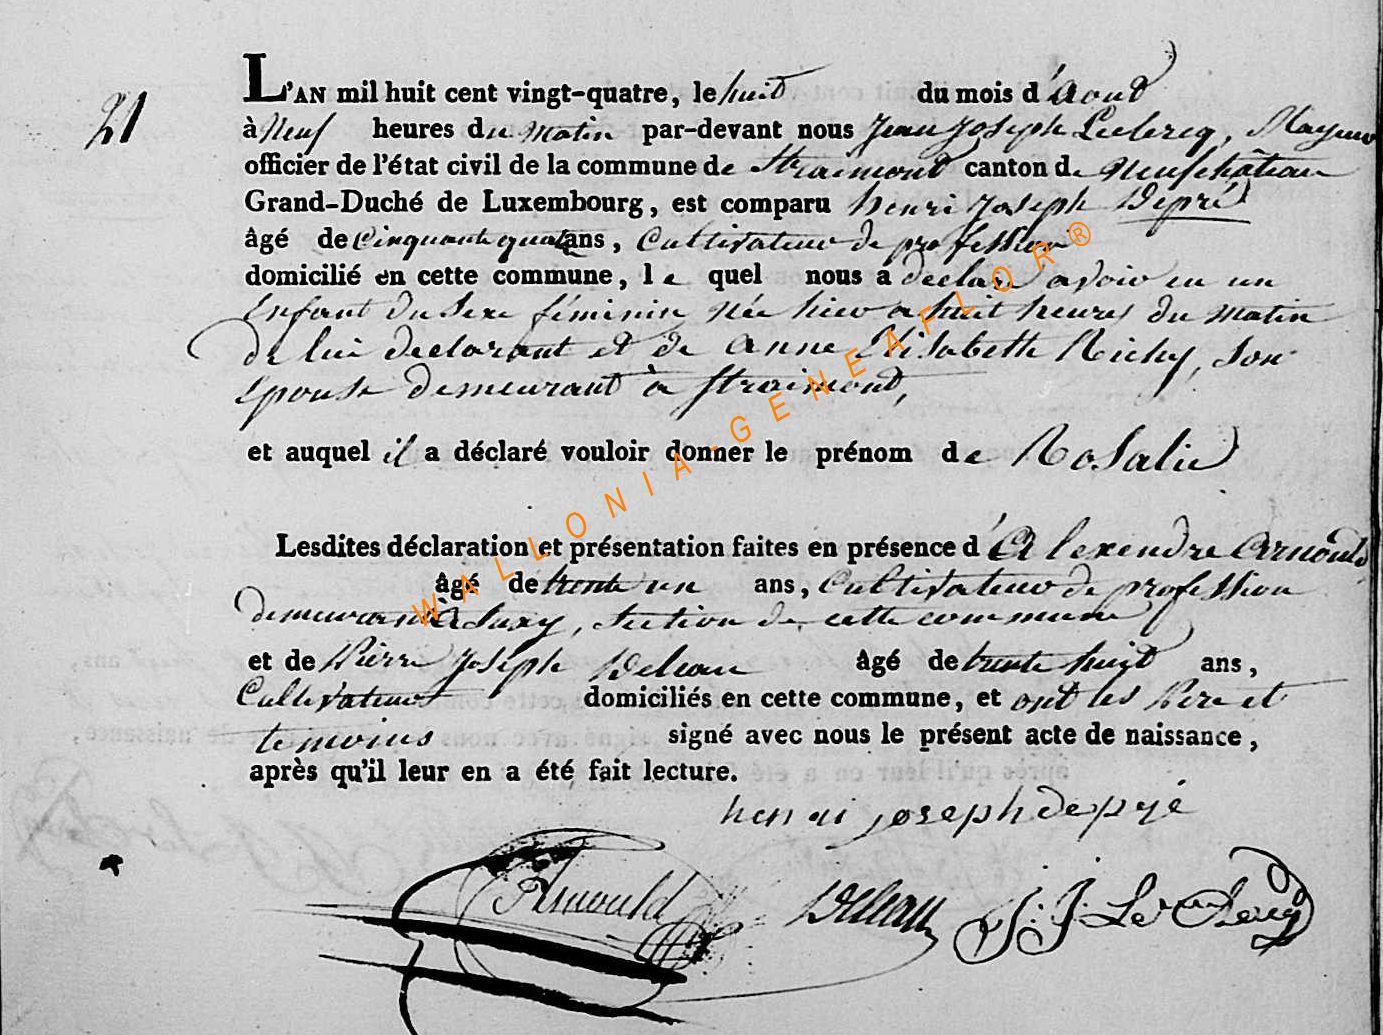 21
L'AN mil huit cent vingt-quatre, le huit du mois d'Aout
à Neuf heures du matin par-devant nous Jean Joseph Leclercq, Mayeur
officier de l'état civil de la commune de Straimont canton de Neufchâteau
Grand-Duché de Luxembourg, est comparu henri Joseph Depré
âgé de Cinquante quatre ans, Cultivateur de profession
domicilié en cette commune, le quel nous a déclaré avoir eu un
Enfant du Sexe féminin née hier a huit heures du matin
de lui declarant et de Anne Elisabette Richy, Son
Epouse demeurant à Straimont,
et auquel il a déclaré vouloir donner le prénom de Rosalie
Lesdites déclaration et présentation faites en présence d'Alexendre Arnould
âgé de trente un ans, Cultivateur de profession
demeurant à Suxy, Section de cette commune
et de Pierre Joseph Deleau âgé de trente huit ans,
Cultivateurs domiciliés en cette commune, et ont les Pere et
temoins signé avec nous le présent acte de naissance,
après qu'il leur en a été fait lecture.
henri joseph depré
Arnould Deleau J. J. Le Clercq
WALLONIA-GENEAFLOR®